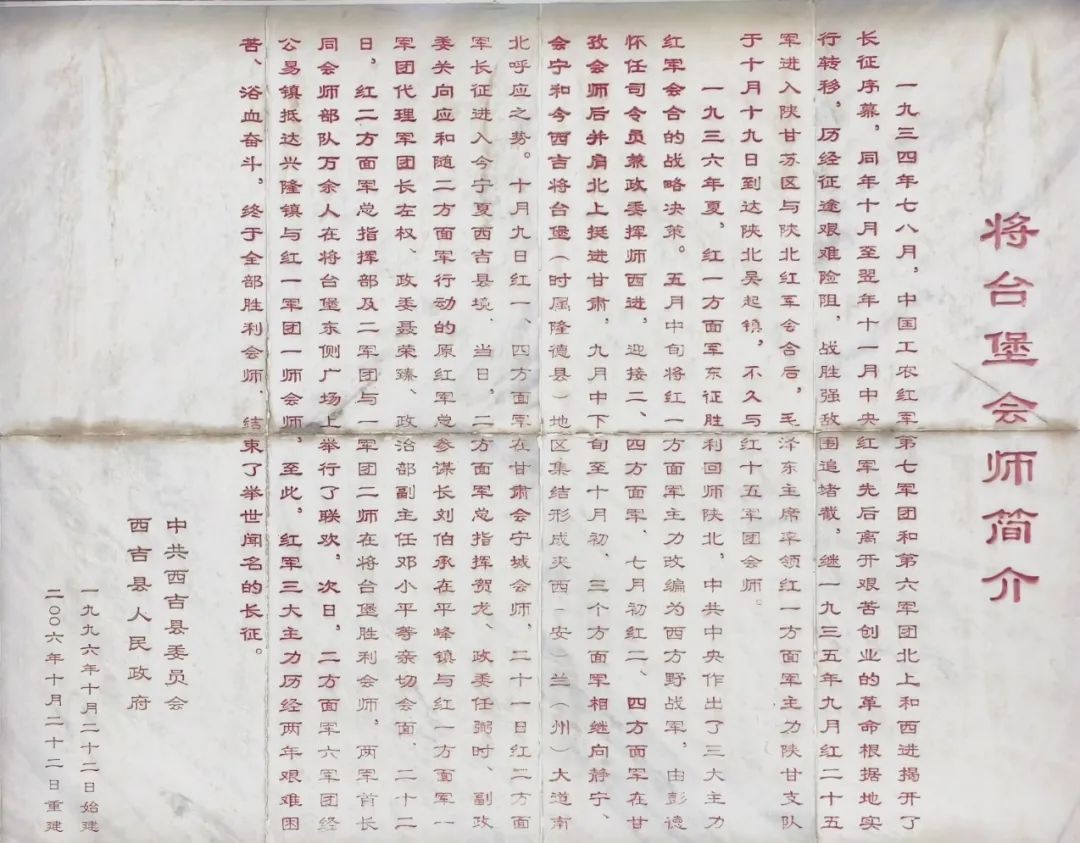 将台堡会师简介
一九三四年七八月，中国工农红军第七军团和第六军团北上和西进揭开了
长征序幕，同年十月至翌年十一月中央红军先后离开艰苦创业的革命根据地实
行转移，历经征途艰难险阻，战胜强敌围追堵截，继一九三五年九月红二十五
军进入陕甘苏区与陕北红军会合后，毛泽东主席率领红一方面军主力陕甘支队
于十月十九日到达陕北吴起镇，不久与红十五军团会师。
一九三六年夏，红一方面军东征胜利回师陕北，中共中央作出了三大主力
红军会合的战略决策。五月中旬将红一方面军主力改编为西方野战军，由彭德
怀任司令员兼政委挥师西进，迎接二、四方面军，七月初红二、四方面军在甘
孜会师后并肩北上挺进甘肃，九月中下旬至十月初，三个方面军相继向静宁、
会宁和今西吉将台堡（时属隆德县）地区集结形成夹西（安）兰（州）大道南
北呼应之势。十月九日红一、四方面军在甘肃会宁城会师，二十一日红二方面
军长征进入今宁夏西吉县境，当日，二方面军总指挥贺龙、政委任弼时、副政
委关向应和随二方面军行动的原红军总参谋长刘伯承在平峰镇与红一方面军一
军团代理军团长左权、政委聂荣臻、政治部副主任邓小平等亲切会面，二十二
日，红二方面军总指挥部及二军团与一军团二师在将台堡胜利会师，两军首长
同会师部队万余人在将台堡东侧广场上举行了联欢，次日，二方面军六军团经
公易镇抵达兴隆镇与红一军团一师会师，至此，红军三大主力历经两年艰难困
苦、浴血奋斗，终于全部胜利会师，结束了举世闻名的长征。
中共西吉县委员会
西吉县人民政府
一九九六年十月二十二日始建
二〇〇六年十月二十二日重建